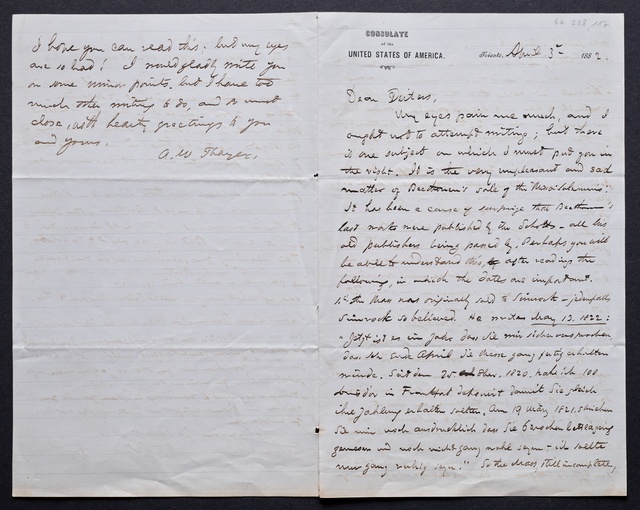 I hope you can read this; but my eyes
are so bad! I would gladly write you
on some minor points, but I have too
much other writing to do, and so must
close, with hearty greetings to you
and yours.
A. W Thayer.
CONSULATE
of the
UNITED STATES OF AMERICA.
Trieste, April 3 1882.
Dear Deiters,
My eyes pain me much, and I
ought not to attempt writing; but there
is one subject on which I must put you in
the right. It is the very unpleasant and sad
matter of Beethoven's sale of the Missa Solemnis.
It has been a cause of surprise that Beethoven's
last works were published by the Schotts - all his
old publishers being passed by. Perhaps you will
be able to understand this, after reading the
following, in which the dates are important.
1st the Mass was originally sold to Simrock - jedenfalls
Simrock so believed. He writes May 13, 1822:
"Jetzt ist es ein Jahr dass Sie mir sicher versprochen,
dass ich Ende April die Messe ganz fertig erhalten
würde. Seit dem 25 1820, habe ich 100
Louisdor in Frankfort deponirt damit Sie gleich
Ihre Zahlung erhalten sollten. Am 19 März 1821, schrieben
Sie mir noch ausdrücklich dass Sie
gewesen und noch nicht ganz wohl seyen - ich sollte
nur ganz ruhig seyn." So the Mass, still incomplete,